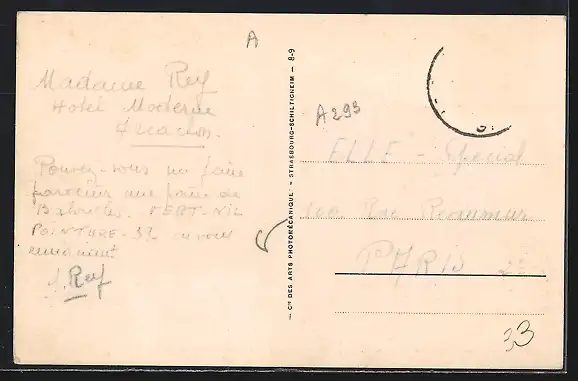 A
Madame Rey
Hotel Moderne
Arcachon.
Pouvez-vous me faire
parvenir une paire de
VERT-NIL
POINTURE - 37 en vous
remerciant
J. Rey
— Cie DES ARTS PHOTOMÉCANIQUE. — STRASBOURG-SCHILTIGHEIM — 8-9
A293
ELLE - Spécial
100 Rue Réaumur
PARIS 2e
33